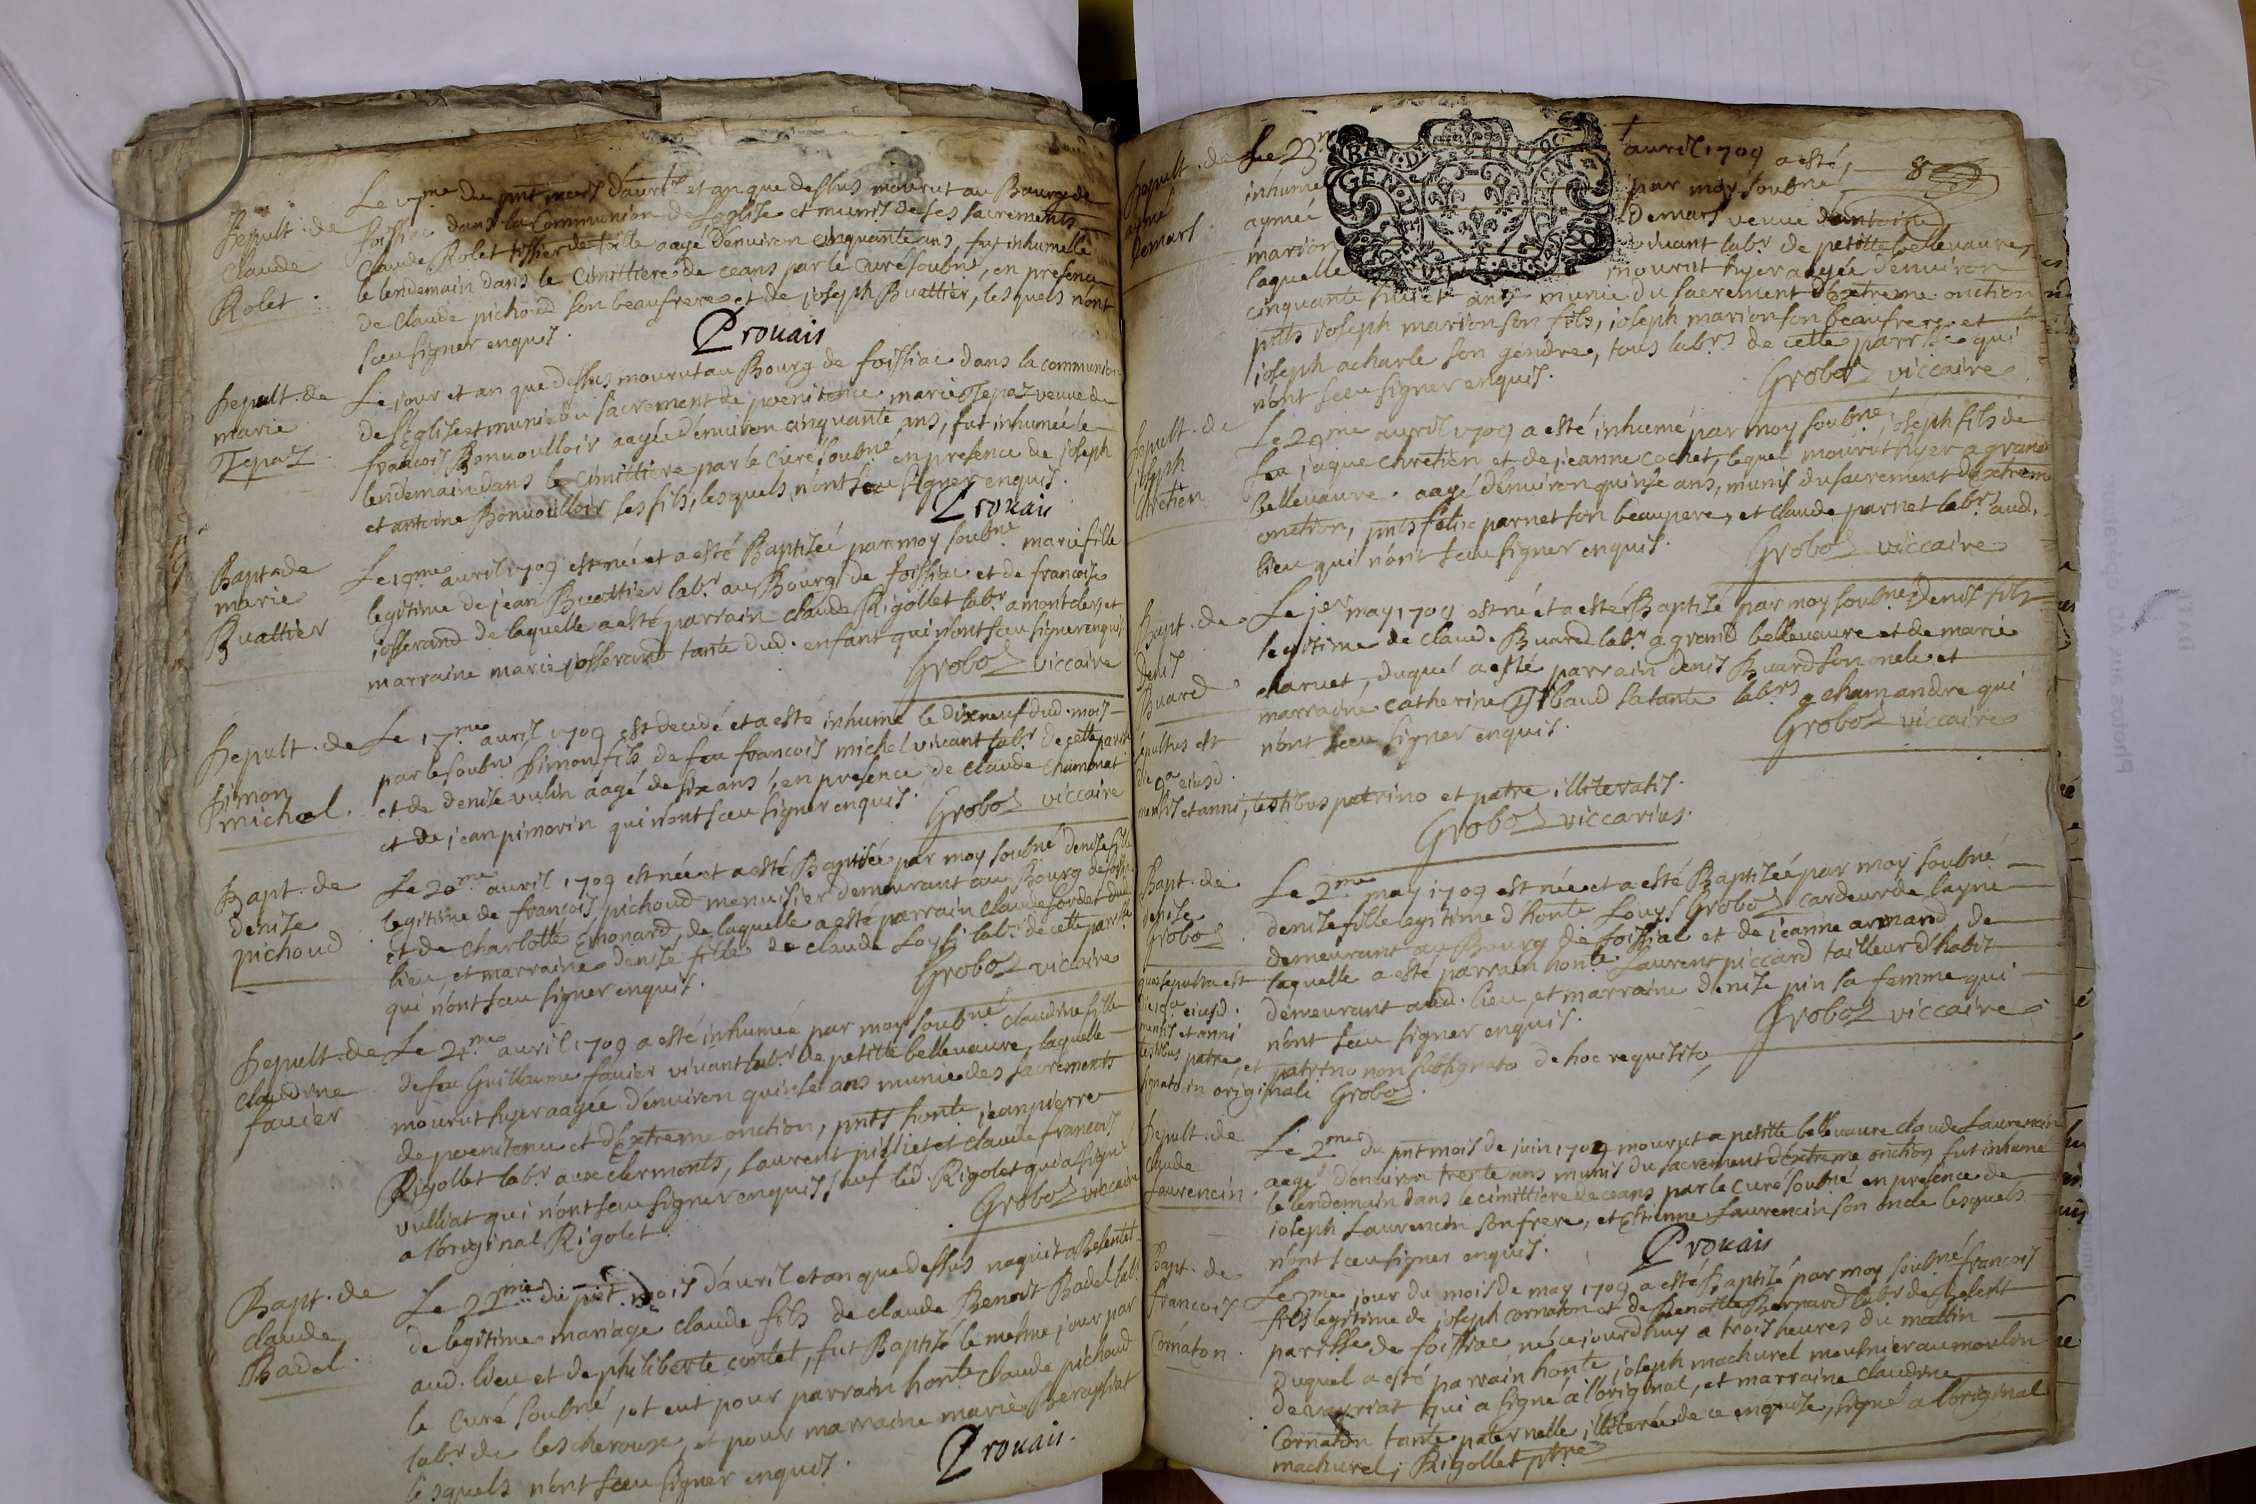 Sepult. de
Claude
Rolet
Le 17me du pnt mois davril et an que dessus mourut au Bourg de
foissiac dans la Communion de L'eglise et munis de ses sacrements
Claude Rolet tissier de toille aagé denviron cinquante ans, fut inhumé
le lendemain dans le Cimittiere de ceans par le Curé soubné, en presence
de Claude pichoud son beaufrere et de joseph Buattier, lesquels n'ont
sceu signer enquis.
Prouais
Sepult. de
marie
Tepaz
Le jour et an que dessus mourut au Bourg de foissiac dans la communion
de l'Eglise et munie du sacrement de poenitence marie Tepaz veuve de
francois Bonvoulloir aagée d'environ cinquante ans, fut inhumée le
lendemain dans le Cimittiere par le Curé soubné en presence de joseph
et antoine Bonvoulloir ses fils, lesquels n'ont sceu signer enquis.
Prouais
Bapt. de
marie
Buattier
Le 19me avril 1709 est née et a esté Baptizée par moy soubné marie fille
legitime de jean Buattier labr au Bourg de foissiac et de francoise
josserand de laquelle a esté parrain claude Rigollet labr a montclers et
marraine marie josserand tante dud. enfant qui n'ont sceu signer enquis
Groboz viccaire
Sepult. de
Simon
michel.
Le 17me avril 1709 est decedé et a esté inhumé le dixneuf dud. mois
par le soubné Simon fils de feu francois michel vivant labr de cette parisse
et de denise vulin aagé de six ans, en presence de Claude Chambat
et de jean pimorin qui n'ont sceu signer enquis.
Groboz viccaire
Bapt. de
denize
pichoud
Le 20me avril 1709 est née et a esté Baptisée par moy soubné denize fille
legitime de francois pichoud menuisier demeurant au Bourg de foissia
et de Charlotte Emonard, de laquelle a esté parrain claude sordet dud
lieu, et marraine denize fille de claude Loys labr de cette parisse
qui n'ont sceu signer enquis.
Groboz viccaire
Sepult. de
claudine
favier
Le 21me avril 1709 a esté inhumée par moy soubné claudine fille
de feu Guillaume favier vivant labr de petitte bellevaure, laquelle
mourut hyer aagée d'environ quinse ans munie des sacrements
de poenitence et d'Extreme onction, pnts honte jeanpierre
Rigollet labr aux clermonts, Laurent pilliet et Claude francois
vulliat qui n'ont sceu signer enquis, sauf led. Rigolet qui a signé
a l'original Rigolet.
Groboz viccaire
Bapt. de
claude
Badel.
Le 22me du pnt mois d'avril et an que dessus naquit a Beslentet
de legitime mariage claude fils de claude Benoit Badel labr
aud. lieu et de philiberte contet, fut Baptisé le mesme jour par
le Curé soubné, et eut pour parrain honte claude pichoud
labr de lescheroux, et pour marraine marie
lesquels n'ont sceu signer enquis.
Prouais.
GEN.
Sepult. de
aymé
Demars.
Le 23me avril 1709 a esté
inhumé par moy soubné,
aymée Demars veuve d'antoine
marion vivant labr de petitte bellevaure,
laquelle mourut hyer aagée d'environ
cinquante huict ans munie du sacrement d'Extreme onction
pnts joseph marion son fils, joseph marion son beaufrere et
joseph acharle son gendre, tous labrs de cette parrisse qui
n'ont sceu signer enquis.
Groboz viccaire
8
Sepult. de
joseph
Chretien
Le 29me avril 1709 a esté inhumé par moy soubné, joseph fils de
feu jaque chretien et de jeanne cochet, lequel mourut hyer a grand
bellevaure. aagé d'environ quinse ans, munis du sacrement d'extreme
onction, pnts felix parnet son beaupere, et claude parnet labrs aud.
lieu qui n'ont sceu signer enquis.
Groboz viccaire
Bapt. de
denis
Buard
Le jer may 1709 est né et a esté Baptizé par moy soubné Denis fils
legitime de claude Buard labr a grand bellevaure et de marie
charvet, duquel a esté parrain denis Buard son oncle et
marraine catherine Tibaud sa tante labrs a chamandre qui
n'ont sceu signer enquis.
Groboz viccaire
sepultus est
die 9a eiusd.
mensis et anni, testibus patrino et patre illiteratis.
Groboz viccarius.
Bapt. de
denize
Groboz
Le 2me may 1709 est née et a esté Baptizée par moy soubné
denize fille legitime d'honte Louys Groboz cardeur de layne
demeurant au Bourg de foissiac et de jeanne armand, de
laquelle a esté parrain honte Laurent piccard tailleur d'habit
demeurant aud. lieu, et marraine denize pin sa femme qui
n'ont sceu signer enquis.
Groboz viccaire
quae sepulta est
eiusd.
mensis et anni
testibus patre, et patrino non subsignato de hoc requisito,
signato in originali Groboz.
Sepult. de
claude
Laurencin.
Le 2me du pnt mois de juin 1709 mourut a petitte bellevaure claude Laurencin
aagé d'environ trente ans munis du sacrement d'extreme onction, fut inhumé
le lendemain dans le cimittiere de ceans par le Curé soubné en presence de
joseph Laurencin son frere, et Estienne Laurencin son oncle lesquels
n'ont sceu signer enquis.
Prouais
Bapt. de
francois
Cornaton.
Le jour du mois de may 1709 a esté Baptizé par moy soubné francois
fils legitime de joseph Cornaton et de Benoitte Bernard labr de Belent
parisse de foissiac né ce jourd'huy a trois heures du mattin
Duquel a esté parrain honte joseph machurel meusnier au moulin
De vayriat qui a signé a l'original, et marraine claudine
Cornaton tante paternelle illiterée de ce enquise, signé a l'original
machurel, Rigollet ptre